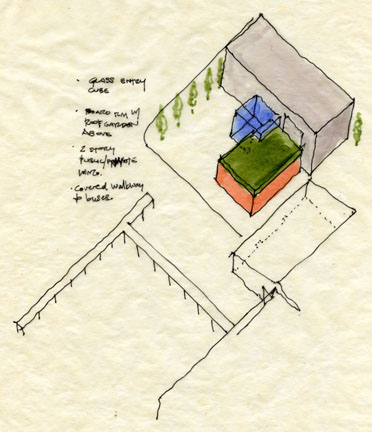 · GLASS ENTRY
CUBE
· BOARD RM W/
ROOF GARDEN
ABOVE
· 2 STORY
PUBLIC/PRIVATE
· Covered walkway
to buses.